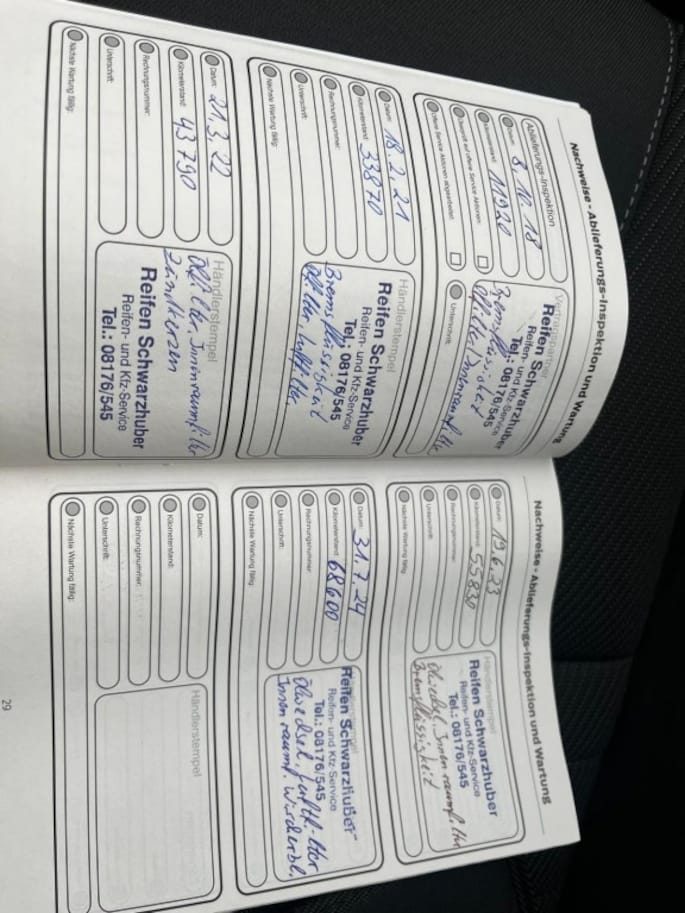 Nachweise - Ablieferungs-Inspektion und Wartung
Ablieferungs-Inspektion
Datum: 8.10.18
Kilometerstand: 11920
Kontrolle auf offene Service Aktionen:
offene Service Aktionen abgearbeitet:
Unterschrift:
Vertragspartner
Reifen Schwarzhuber
Reifen- und Kfz-Service
Tel.: 08176/545
Bremsflüssigkeit
Ölfilter, Innenraumfilter
Datum: 18.2.21
Kilometerstand: 33870
Rechnungsnummer:
Unterschrift:
Nächste Wartung fällig:
Händlerstempel
Reifen Schwarzhuber
Reifen- und Kfz-Service
Tel.: 08176/545
Bremsflüssigkeit
Ölfilter, Luftfilter
Datum: 21.3.22
Kilometerstand: 43790
Rechnungsnummer:
Unterschrift:
Nächste Wartung fällig:
Händlerstempel
Ölfilter, Innenraumfilter
Zündkerzen
Reifen Schwarzhuber
Reifen- und Kfz-Service
Tel.: 08176/545
Nachweise - Ablieferungs-Inspektion und Wartung
Datum: 19.6.23
Kilometerstand: 55830
Rechnungsnummer:
Unterschrift:
Nächste Wartung fällig:
Händlerstempel
Reifen Schwarzhuber
Reifen- und Kfz-Service
Tel.: 08176/545
Ölwechsel, Innenraumfilter
Bremsflüssigkeit
Datum: 31.7.24
Kilometerstand: 68600
Rechnungsnummer:
Unterschrift:
Nächste Wartung fällig:
Reifen Schwarzhuber
Reifen- und Kfz-Service
Tel.: 08176/545
Ölwechsel, Luftfilter
Innenraumf. Wischerbl.
Datum:
Kilometerstand:
Rechnungsnummer:
Unterschrift:
Nächste Wartung fällig:
Händlerstempel
29